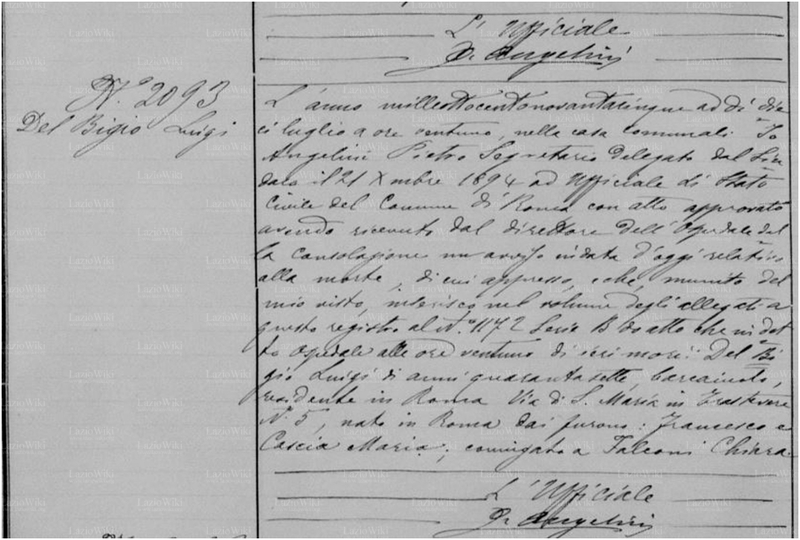 L'Ufficiale
P. Angelini
N.° 2093
Del Bigio Luigi
L'anno milleottocentonovantacinque ad dì die
ci luglio a ore ventuno, nella casa comunale Io
Angelini Pietro Segretario Delegato dal Sin
daco il 21 Xmbre 1894 ad Ufficiale di Stato
Civile del Comune di Roma con atto approvato
avendo ricevuto dal direttore dell'Ospedale del
la Consolazione un avviso in data d'oggi relativo
alla morte, di cui appresso, e che, munito del
mio visto, inserisco nel volume degli allegati a
questo registro al N.° 1172 Serie B do atto che in det
to ospedale alle ore ventuno di ieri morì: Del Bi
gio Luigi di anni quarantasette, barcaiuolo,
residente in Roma Via di S. Maria in Trastevere
N.° 5, nato in Roma dai furono: Francesco e
Cascia Maria; coniugato a Falconi Chiara.
L'Ufficiale
P. Angelini
LazioWiki